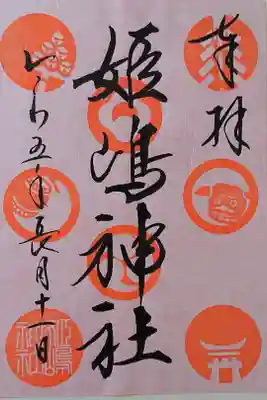 奉拝
姫嶋神社
令わ五年長月十一日
姫嶋神社